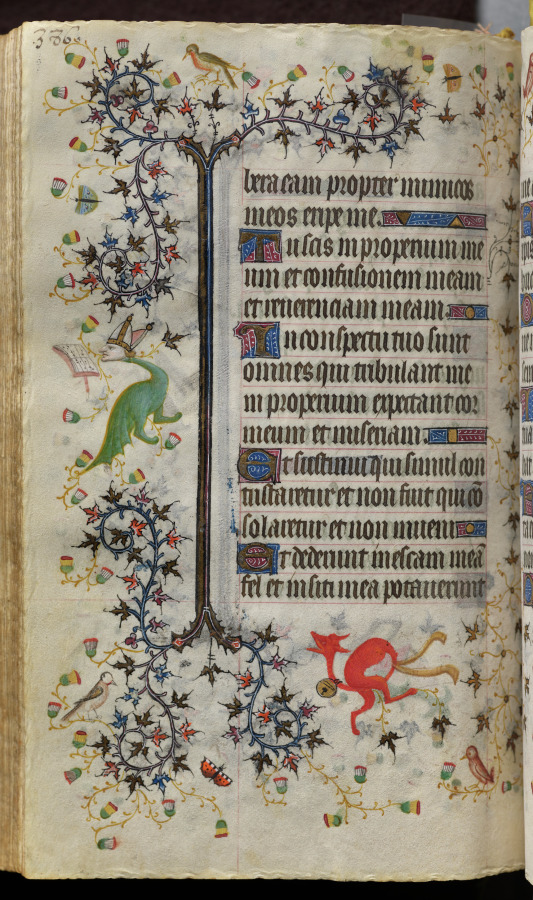 336
bera eam propter inimicos
meos eripe me.
Tu scis inproperium me
um et confusionem meam
et reverenciam meam.
In conspectu tuo sunt
omnes qui tribulant me
inproperium expectant cor
meum et miseriam.
Et sustinui qui simul con
tristaretur et non fuit qui cō
solaretur et non inveni
Et dederunt in escam meā
fel et in siti mea potaverunt